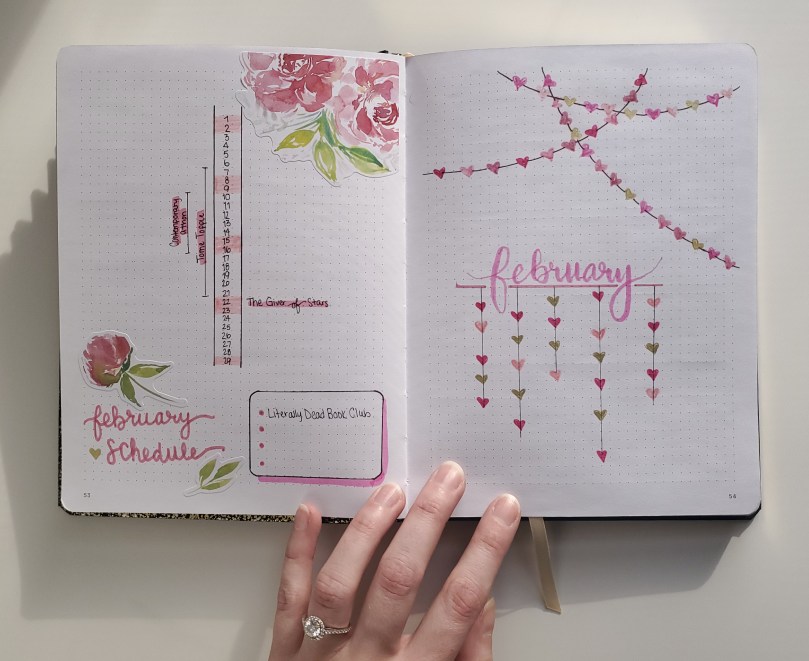 1
2
3
4
5
6
7
8
9
10
11
12
13
14
15
16
17
18
19
20
21
22
23
24
25
26
27
28
29
Contemporary
athon
Tome Topple
The Giver of Stars
february
Schedule
Literally Dead Book Club
53
february
54